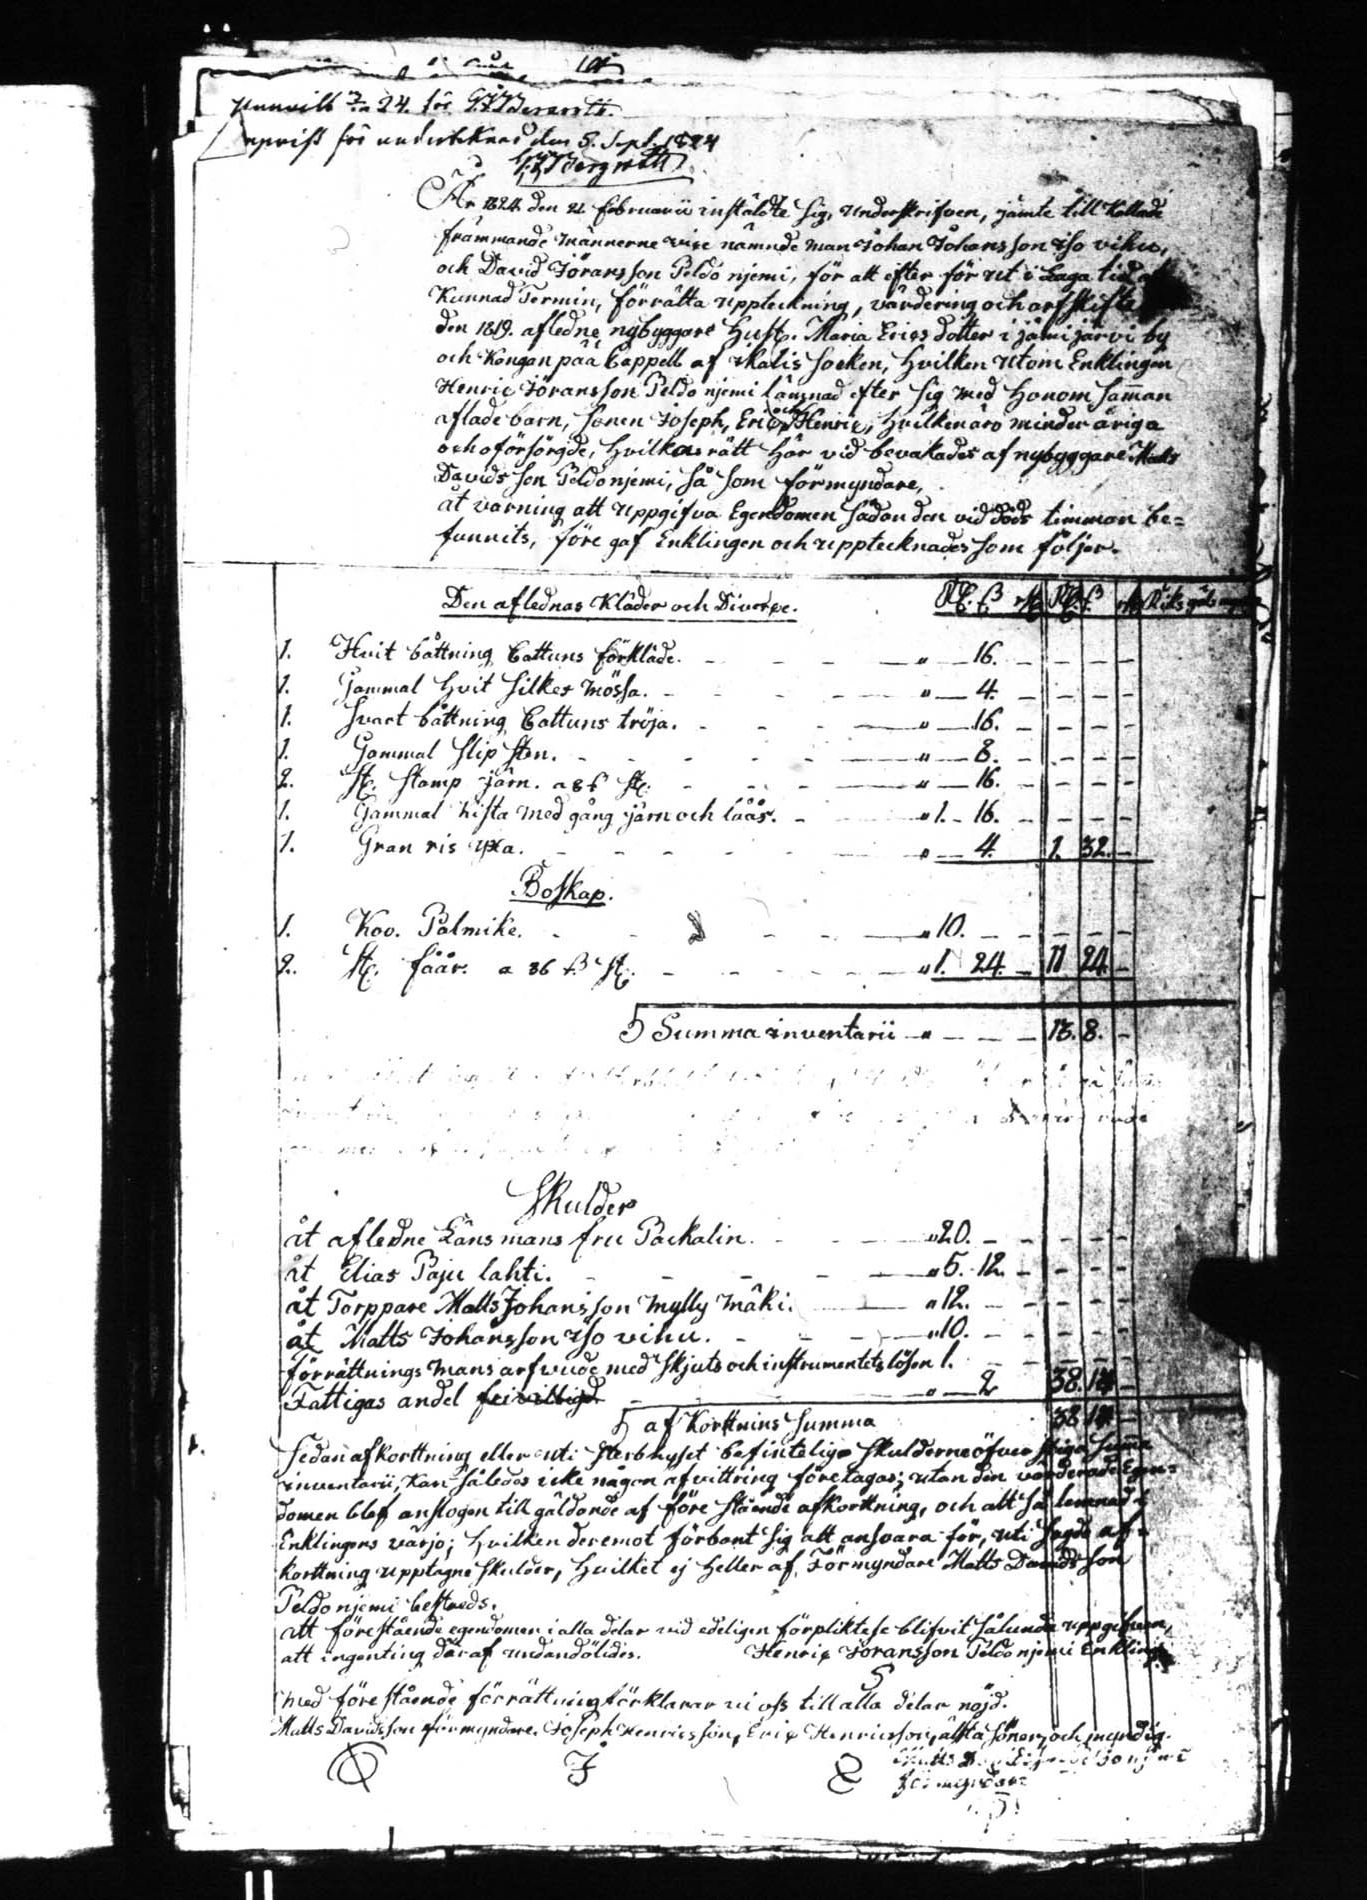 24. för
för undertecknad den 5. Sept. 1824
År 1824 den 21 Februarii instälde sig, underskrifven, jämte till Kallade
främmande männerne vice nämnde man Johan Johansson iso vihu,
och David Jöransson Peldo njemi, för att efter för ut i Laga tid
Kunnad Termin, förrätta uppteckning, värdering och arfskifte
den 1819. afledne nybyggare Hust. Maria Erics dotter i jämijärvi by
och Kangan pää Cappell af ikalis Socken, Hvilken utom Enklingen
Henric Jöransson Peldo njemi lämnad efter sig med Honom samman
aflade barn, Sonen Joseph, Eric och Henric, Hvilken äro minder åriga
och oförsörgde, Hvilkas rätt Här vid bevakades af nybyggare Matts
Davids Son Peldonjemi, Så Som förmyndare,
åt varning att uppgifva Egendomen Sådan den vid döds timman be=
funnits, före gaf Enklingen och upptecknades Som följer.
Den aflednas Kläder och Diverse.
1. Hvit båttning Cattuns förkläde. " 16.
1. Gammal Hvit Silkes Mössa. " 4.
1. Svart båttning Cattuns tröja. " 16.
1. Gammal Slip Sten. " 8.
2. St. Stamp järn. a 8 ß St. " 16.
1. Gammal kista med gång järn och låås. " 1. 16.
1. Gran ris yxa. " 4. 1. 32.
Boskap.
1. Koo. Palmike. " 10.
2. St. fåår. a 36 ß St. " 1. 24. 11 24.
Summa inventarii " 13. 8.
Skulder
åt afledne Länsmans fru Packalin. " 20.
åt Elias Paju lahti. " 5. 12.
åt Torppare Matts Johansson Mylly mäki. " 12.
åt Matts Johansson iso vihu. " 10.
förrättnings mans arfvude med Skjuts och instrumentets lösen 1.
Fattigas andel frivilligd " 2 38. 14
af Korttnins Summa 38 14
Sedan afkorttning eller uti Sterbhuset befintelige Skulderne öfver stiga Summa
inventarii, Kan Således icke någon afvittring företagas; utan den värderade Egen=
domen blef anslagen till gäldande af före stående afkorttning, och att Så lemnad i
Enklingens värjo; Hvilken deremot förbant Sig att ansvara för, uti Sagde af=
korttning upptagne Skulder, Hvilket ej Heller af Förmyndare Matts Davids Son
Peldonjemi bestreds.
att förestående egendomen i alla delar vid edeligen förpliktelse blifvit Sålunda uppgifven,
att ingenting där af undandöldes. Henric Jöransson Peldo njemi Enkling
med förestående förrättning förklarar vi oss till alla delar nöjd.
Matts Davidsson förmyndare. Joseph Henricsson, Eric Henricsson, äkta Söner och myndig.
förmyndare